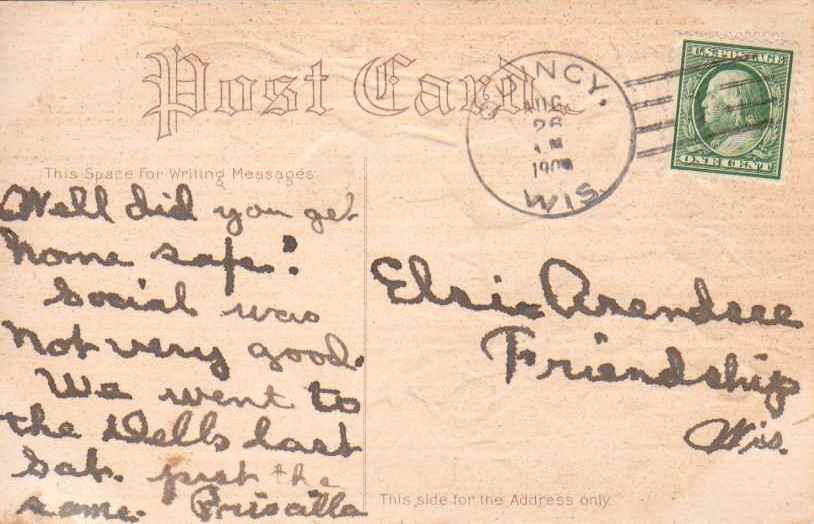 Post Card
NCY.
AUG
26
WIS.
U.S. POSTAGE
ONE CENT
This Space For Writing Messages
Well did you get
home safe?
Social was
not very good.
We went to
the Dells last
Sat. just the
same. Priscilla
Elsie Arendsee
Friendship
Wis.
This side for the Address only